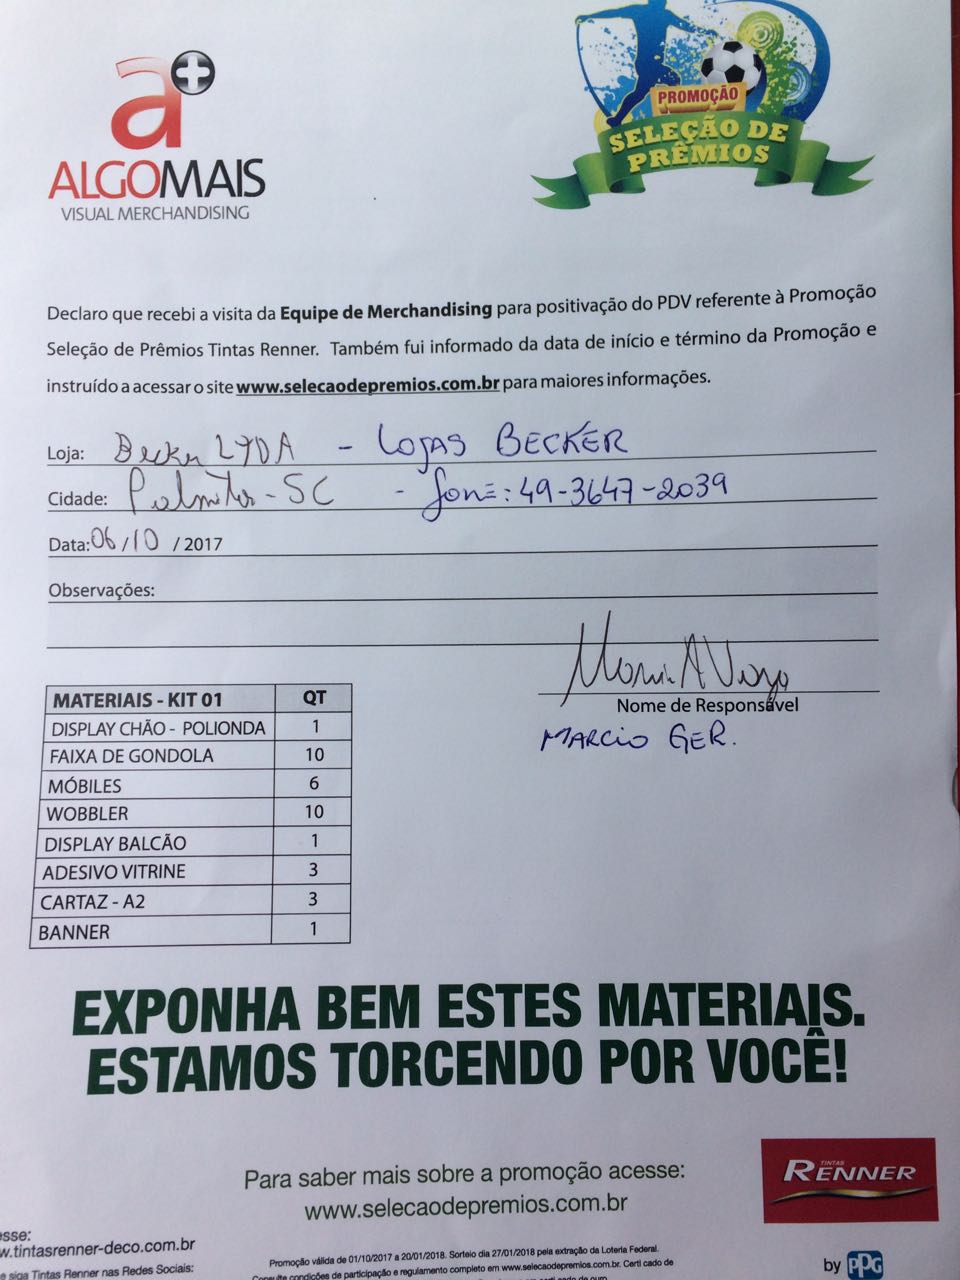 a+
ALGOMAIS
VISUAL MERCHANDISING
PROMOÇÃO
SELEÇÃO DE
PRÊMIOS
Declaro que recebi a visita da Equipe de Merchandising para positivação do PDV referente à Promoção
Seleção de Prêmios Tintas Renner. Também fui informado da data de início e término da Promoção e
instruído a acessar o site www.selecaodepremios.com.br para maiores informações.
Loja: Becker LTDA - LOJAS BECKER
Cidade: Palmitos - SC - fone: 49-3647-2039
Data: 06/10 / 2017
Observações:
Nome de Responsável
MARCIO GER.
MATERIAIS - KIT 01 QT
DISPLAY CHÃO - POLIONDA 1
FAIXA DE GONDOLA 10
MÓBILES 6
WOBBLER 10
DISPLAY BALCÃO 1
ADESIVO VITRINE 3
CARTAZ - A2 3
BANNER 1
EXPONHA BEM ESTES MATERIAIS.
ESTAMOS TORCENDO POR VOCÊ!
Para saber mais sobre a promoção acesse:
www.selecaodepremios.com.br
TINTAS
RENNER
esse:
w.tintasrenner-deco.com.br
e siga Tintas Renner nas Redes Sociais:
Promoção válida de 01/10/2017 a 20/01/2018. Sorteio dia 27/01/2018 pela extração da Loteria Federal.
Consulte condições de participação e regulamento completo em www.selecaodepremios.com.br. Certi cado de
by PPG